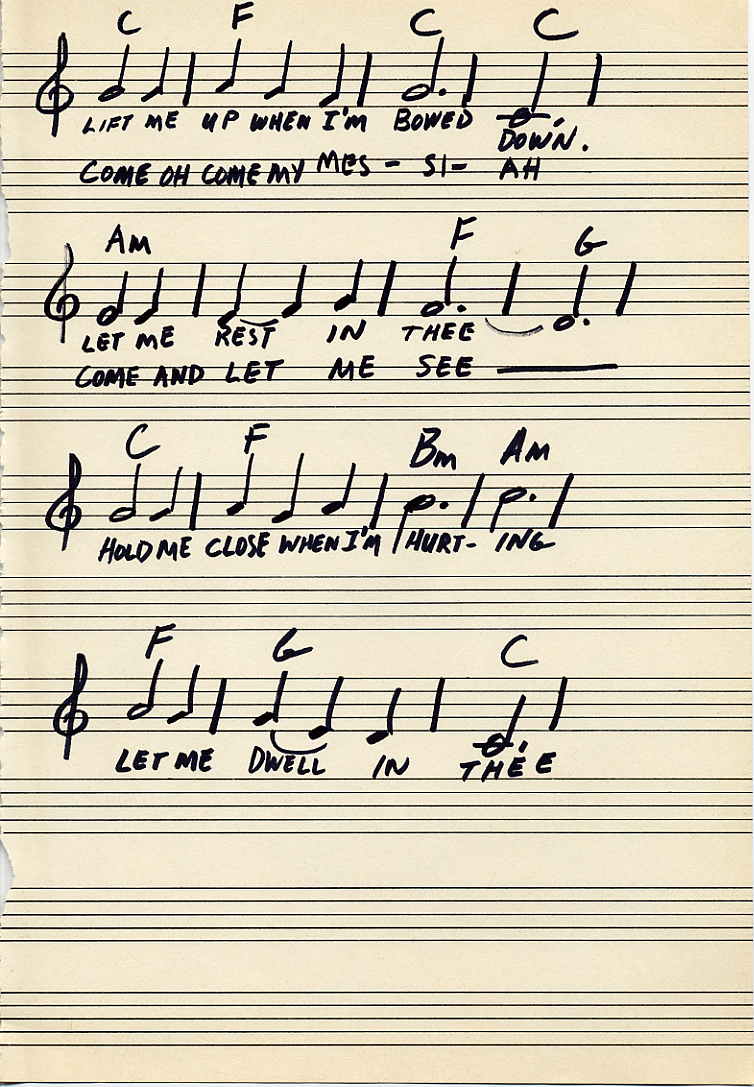 C F C C
LIFT ME UP WHEN I'M BOWED DOWN.
COME OH COME MY MES - SI - AH
Am F G
LET ME REST IN THEE
COME AND LET ME SEE
C F Bm Am
HOLD ME CLOSE WHEN I'M HURT- ING
F G C
LET ME DWELL IN THEE